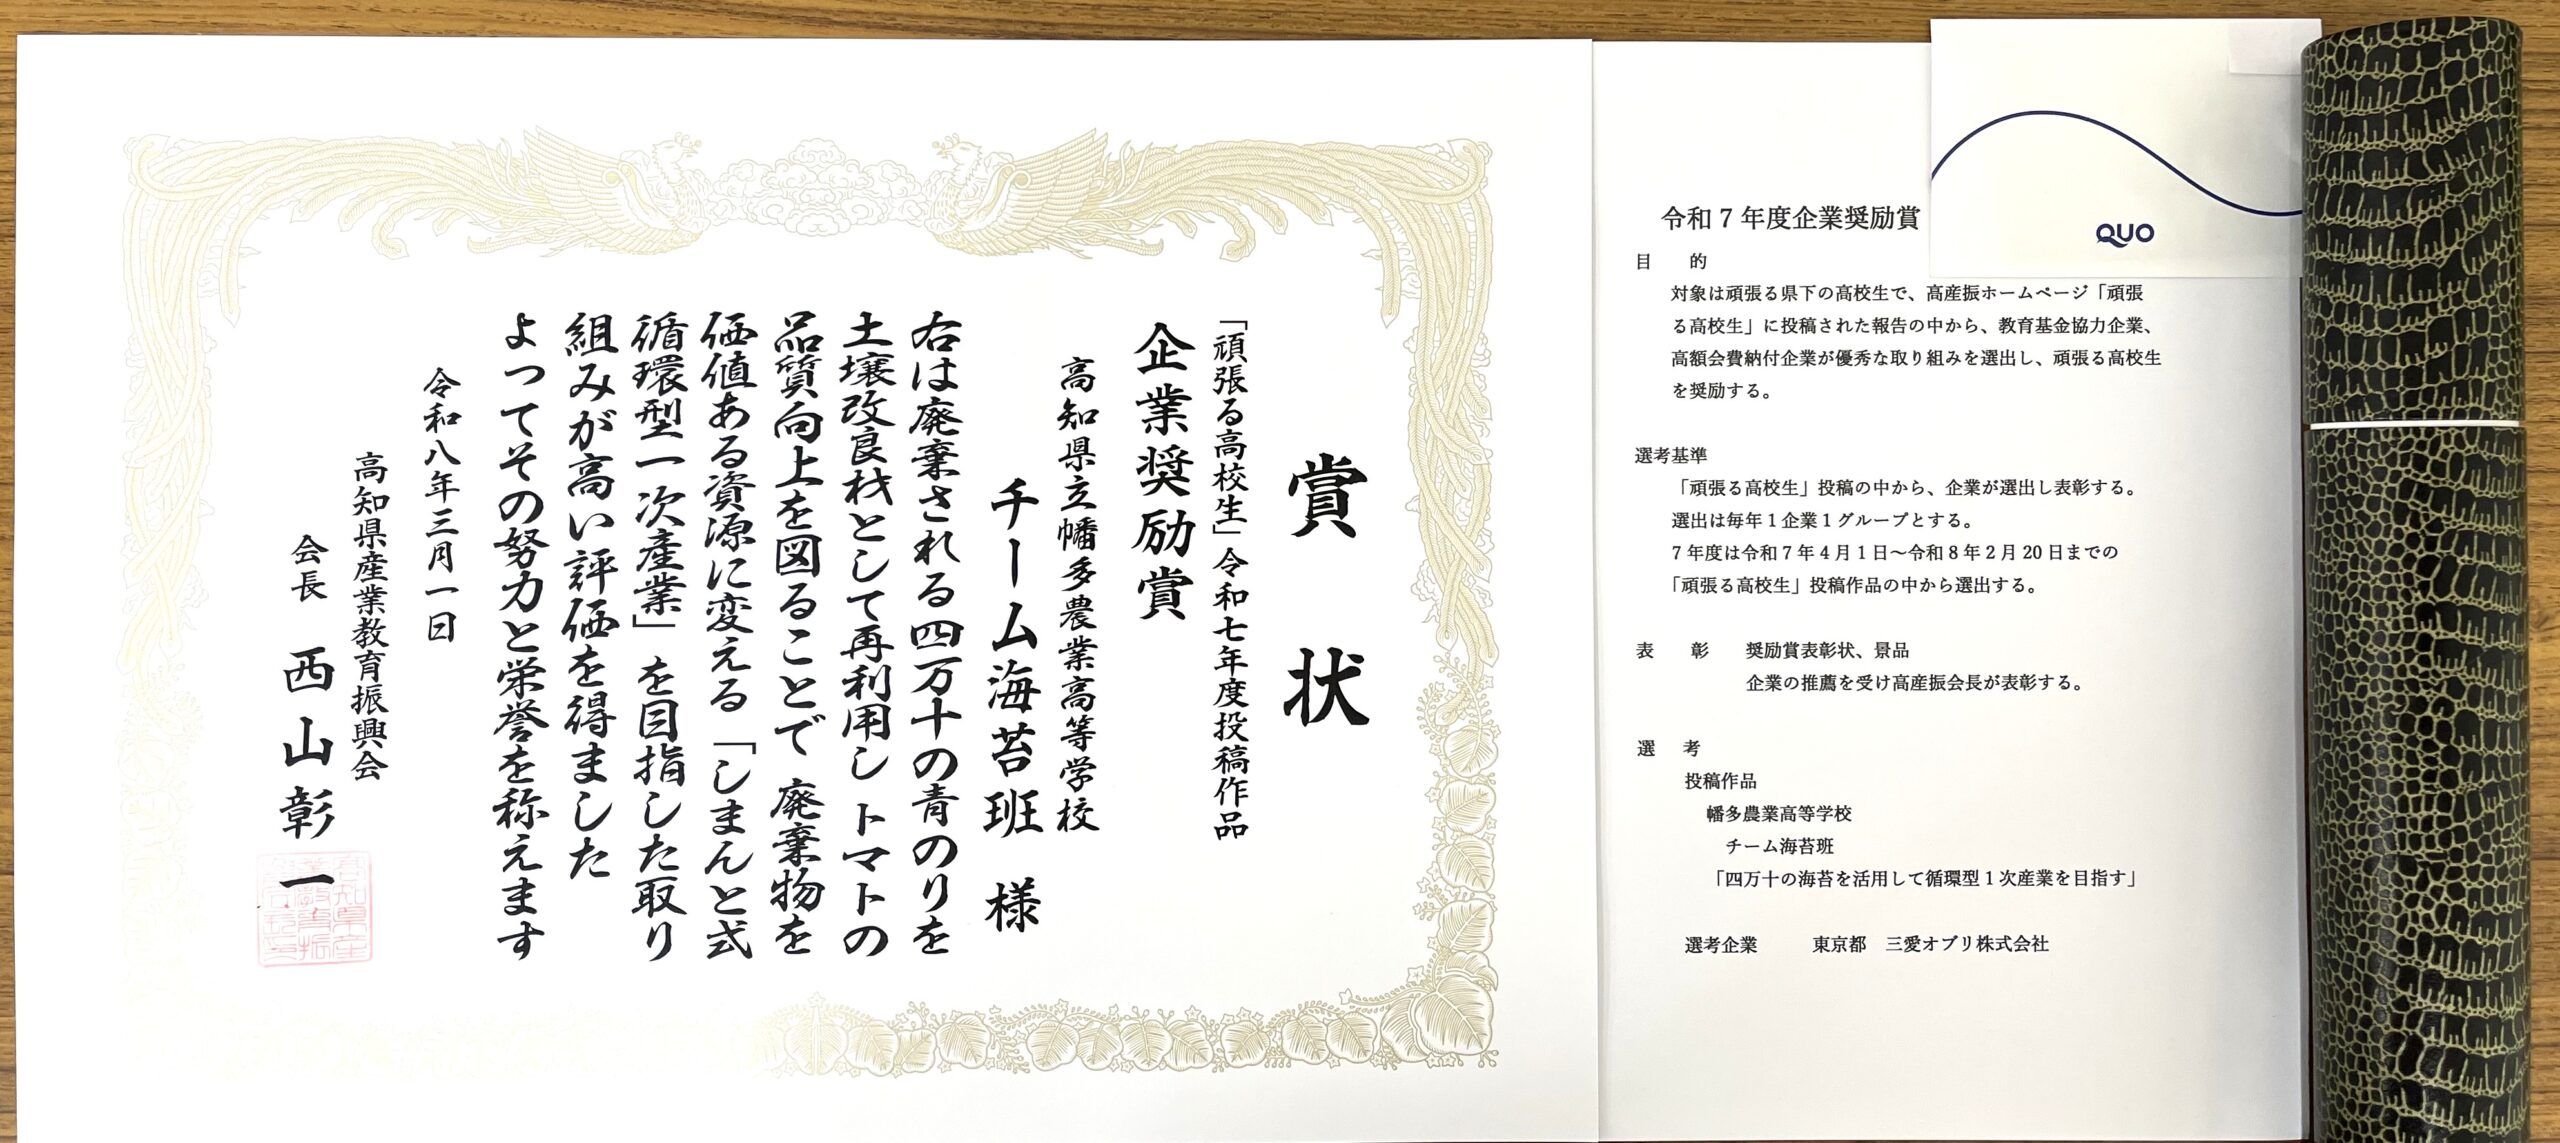 賞状
「頑張る高校生」令和七年度投稿作品
企業奨励賞
高知県立幡多農業高等学校
チーム海苔班 様
右は廃棄される四万十の青のりを
土壌改良材として再利用し トマトの
品質向上を図ることで 廃棄物を
価値ある資源に変える 「しまんと式
循環型一次産業」 を目指した取り
組みが高い評価を得ました
よってその努力と栄誉を称えます
令和八年三月一日
高知県産業教育振興会
会長 西山彰一
QUO
令和7年度企業奨励賞
目 的
対象は頑張る県下の高校生で、高産振ホームページ「頑張
る高校生」に投稿された報告の中から、教育基金協力企業、
高額会費納付企業が優秀な取り組みを選出し、頑張る高校生
を奨励する。
選考基準
「頑張る高校生」投稿の中から、企業が選出し表彰する。
選出は毎年1企業1グループとする。
7年度は令和7年4月1日~令和8年2月20日までの
「頑張る高校生」投稿作品の中から選出する。
表 彰 奨励賞表彰状、景品
企業の推薦を受け高産振会長が表彰する。
選 考
投稿作品
幡多農業高等学校
チーム海苔班
「四万十の海苔を活用して循環型1次産業を目指す」
選考企業 東京都 三愛オブリ株式会社